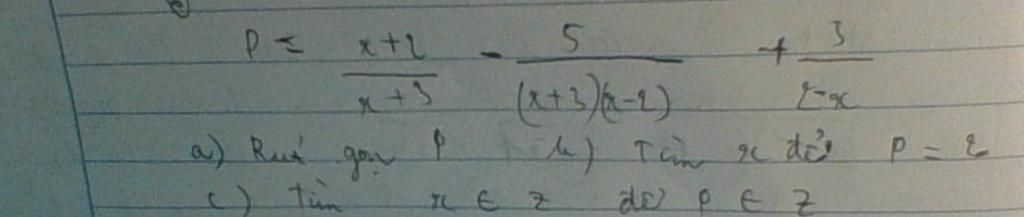 P = \frac{x+2}{x+3} - \frac{5}{(x+3)(x-2)} + \frac{3}{2-x}
a) Rút gọn P b) Tìm x để P = 2
c) Tìm x ∈ Z để P ∈ Z